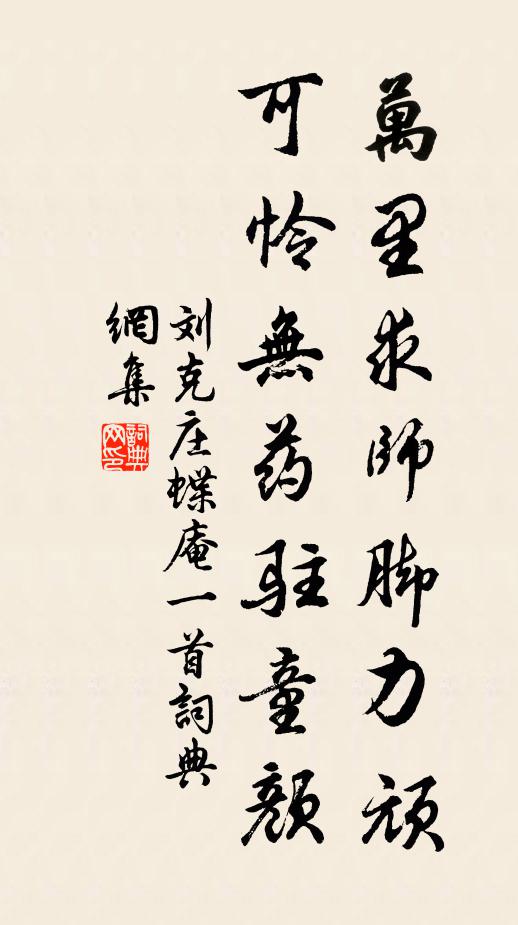 萬里求師脚力頑
可怜無药駐童顏
刘克庄蝶庵一首詞典
網集
詞典网印